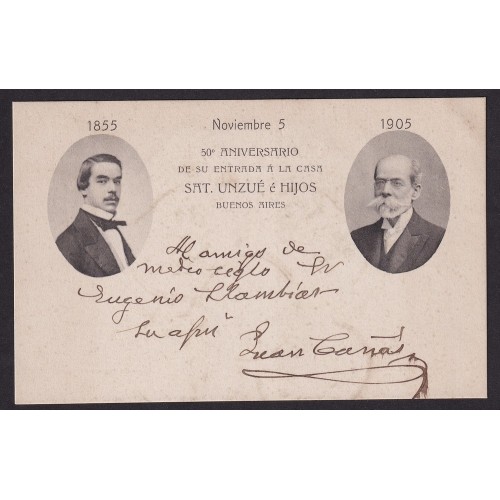 1855
Noviembre 5
1905
50º ANIVERSARIO
DE SU ENTRADA Á LA CASA
SAT. UNZUÉ é HIJOS
BUENOS AIRES
Al amigo de
medio ciglo Sr
Eugenio Llambías
Su afmº
Juan Cañás